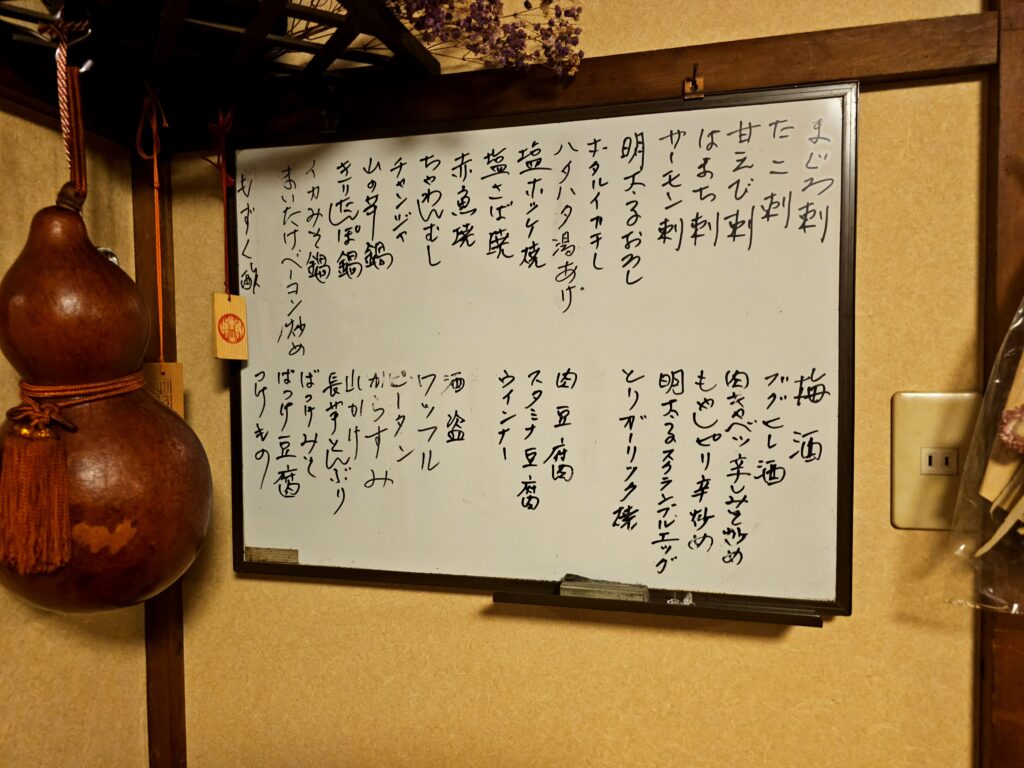 まぐろ刺
たこ刺
甘えび刺
はまち刺
サーモン刺
明太子おろし
ホタルイカ干し
ハタハタ湯あげ
塩ホッケ焼
塩さば焼
赤魚焼
ちゃわんむし
チャンジャ
山の芋鍋
きりたんぽ鍋
イカみそ鍋
まいたけベーコン炒め
もずく酢
梅酒
肉キャベツ辛しみそ炒め
もやしピリ辛炒め
明太子スクランブルエッグ
とりガーリック焼
肉豆腐
スタミナ豆腐
ウインナー
酒盗
ワッフル
ピータン
からすみ
山かけ
長芋とんぶり
ばっけみそ
ばっけ豆腐
つけもの